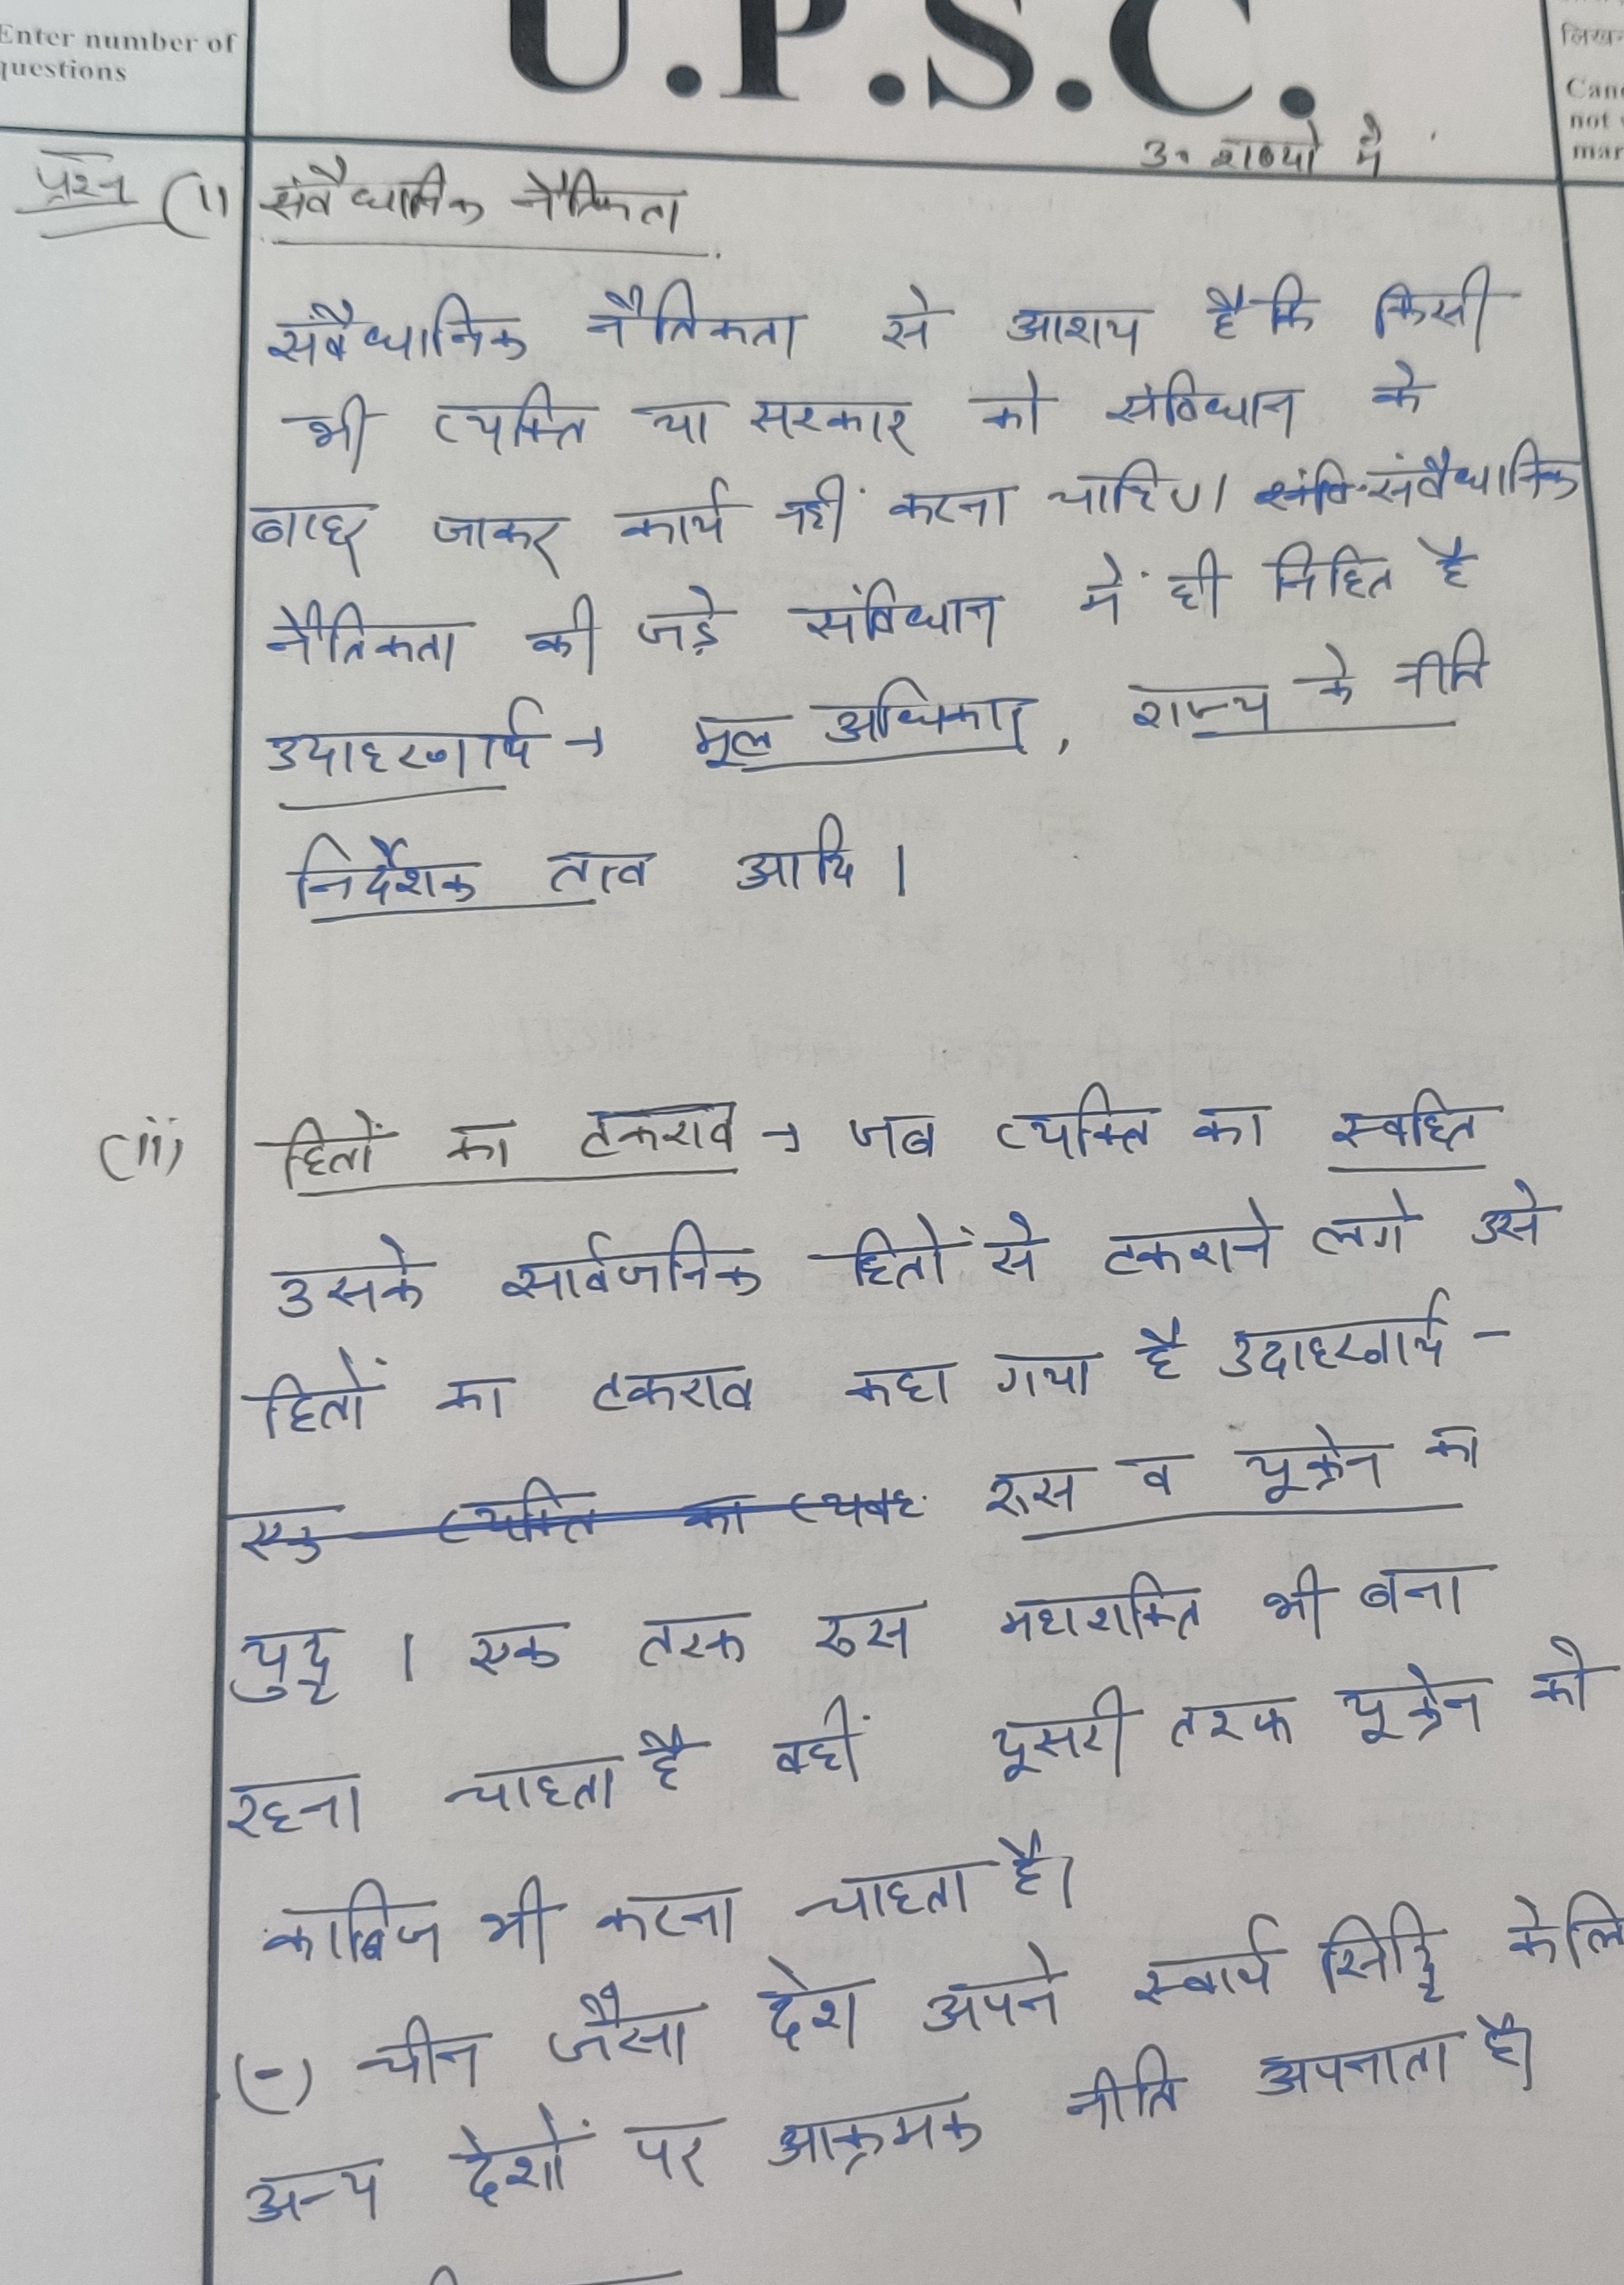 Enter number of
questions
U.P.S.C.
लिख
Can
not
mar
30 शब्दों में
प्रश्न (i) संवैधानिक नैतिकता
संवैधानिक नैतिकता से आशय है कि किसी
भी व्यक्ति या सरकार को संविधान के
बाहर जाकर कार्य नहीं करना चाहिए। संवैधानिक
नैतिकता की जड़े संविधान में ही निहित है
उदाहरणार्थ → मूल अधिकार, राज्य के नीति
निर्देशक तत्व आदि।
(ii) हितों का टकराव → जब व्यक्ति का स्वहित
उसके सार्वजनिक हितों से टकराने लगे उसे
हितों का टकराव कहा गया है उदाहरणार्थ -
एक व्यक्ति का व्यवह रूस व यूक्रेन का
युद्ध । एक तरफ रूस महाशक्ति भी बना
रहना चाहता है वहीं दूसरी तरफ यूक्रेन को
काबिज भी करना चाहता है।
(-) चीन जैसा देश अपने स्वार्थ सिद्धि के लि
अन्य देशों पर आक्रमक नीति अपनाता है।